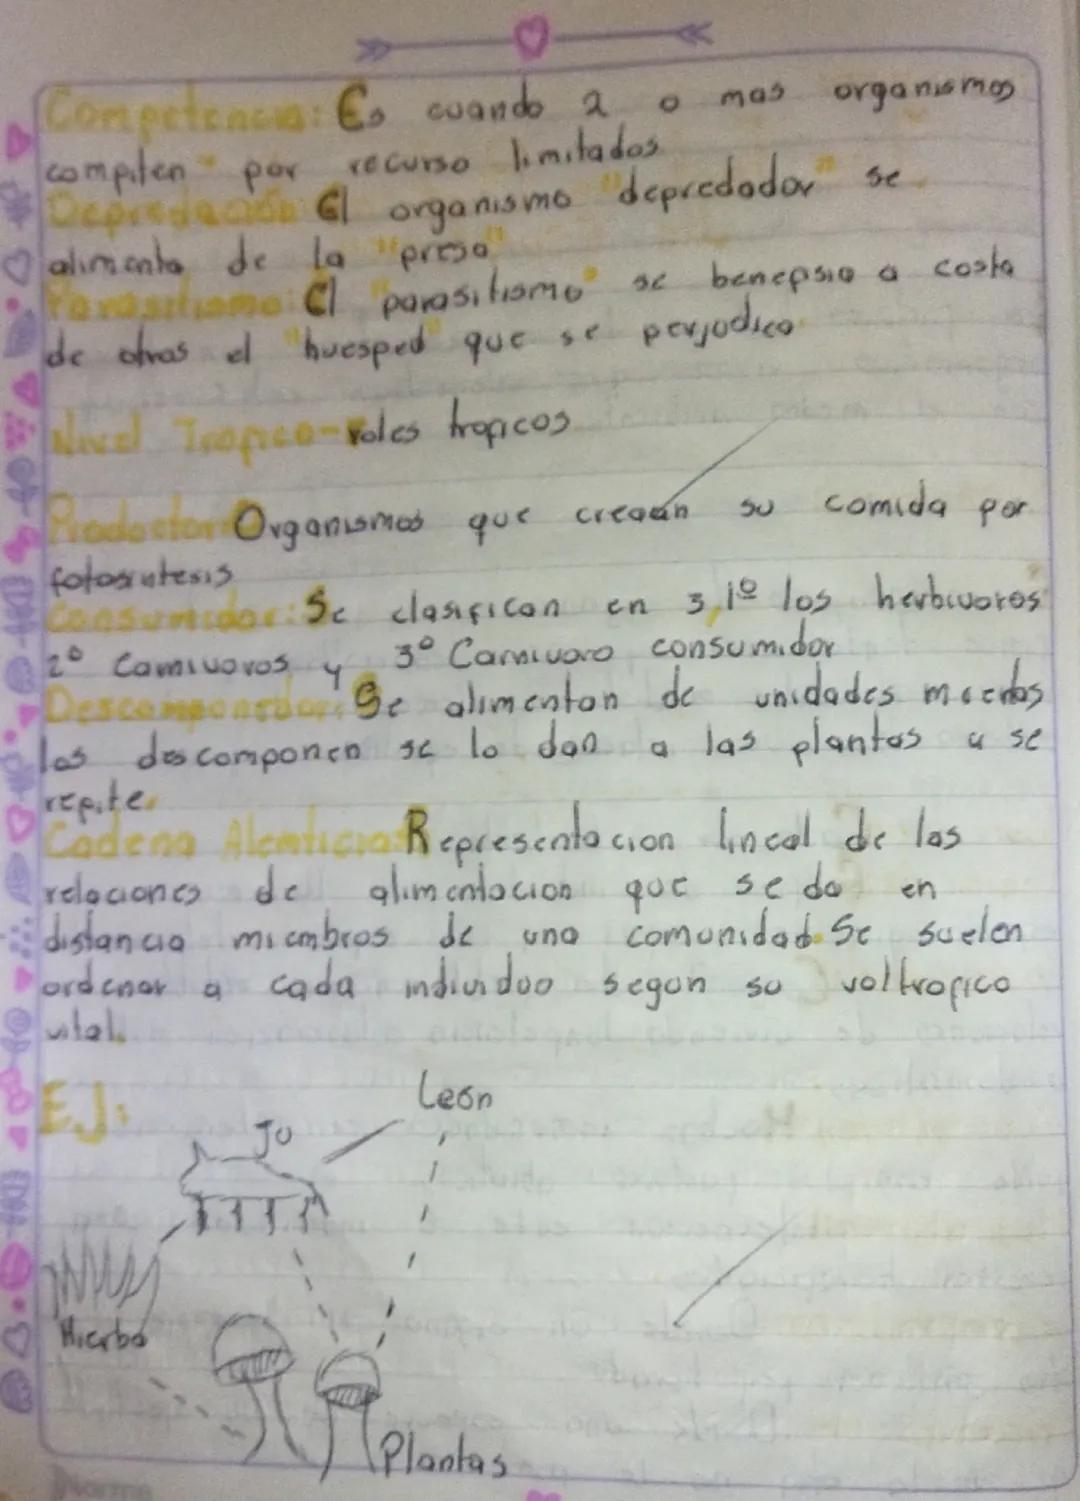 Competencia: Es cuando 2 o mas organismos
compiten" por recurso limitados
Depredación El organismo "depredador" se
alimenta de la "presa"
Parasitismo: El "parasitismo" se benepsia a costa
de otras el "huesped" que se perjudica
Nivel Tropico-roles tropicos
Productor Organismos que crean su comida por
fotosintesis
Consumidor: Se clasifican en 3, 1º los herbivoros
2º Carnivoros y 3º Carnivoro consumidor
Descomponedor: Se alimentan de unidades muertas
las descomponen se lo dan a las plantas y se
repite.
Cadena Alenticia: Representacion lineal de las
relaciones de alimentacion que se da en
distancia miembros de una comunidad. Se suelen
ordenar a cada individuo segun su rol tropico
vital.
EJ:
Leon
Hierba
Plantas
Norma